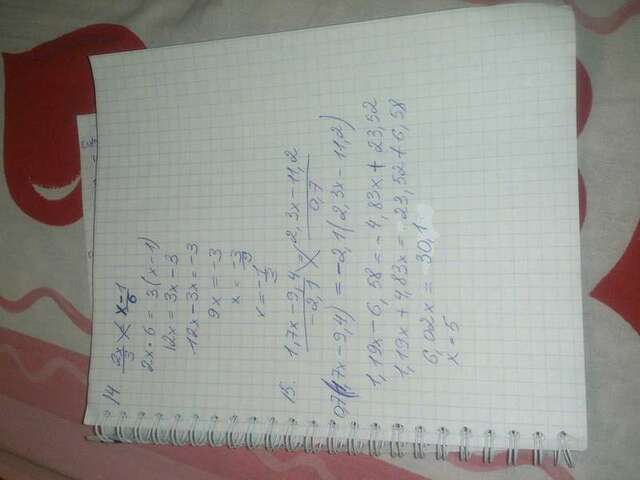 14
2x/3 = x-1/6
2x · 6 = 3(x-1)
12x = 3x - 3
12x - 3x = -3
9x = -3
x = -3/9
x = -1/3
15. 1,7x-9,4/-2,1 = 2,3x-11,2/0,7
0,7(1,7x-9,4) = -2,1(2,3x-11,2)
1,19x - 6,58 = -4,83x + 23,52
1,19x + 4,83x = 23,52 + 6,58
6,02x = 30,1
x = 5